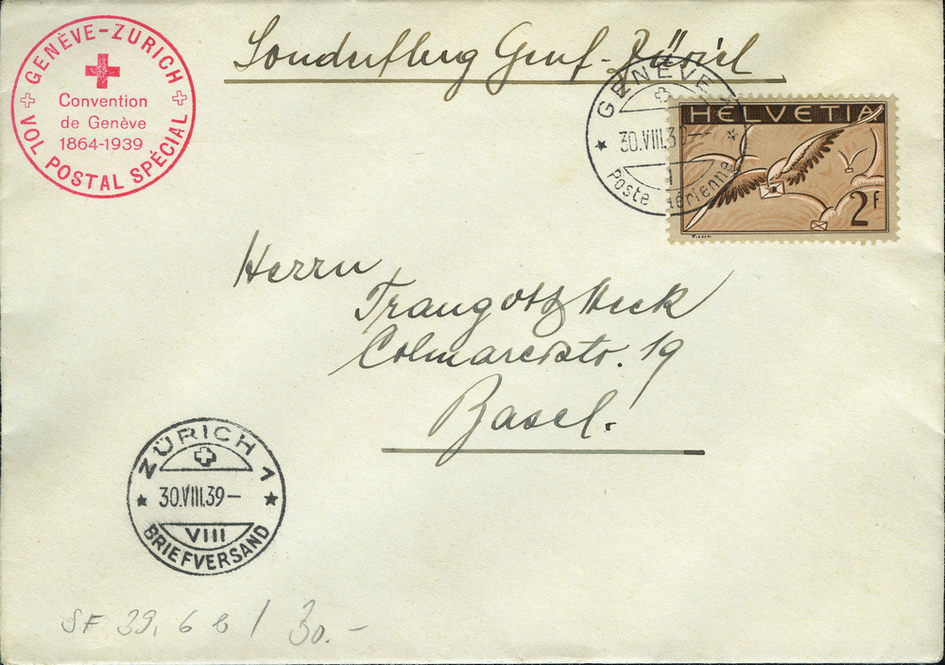 GENÈVE-ZURICH
Convention
de Genève
1864-1939
VOL POSTAL SPÉCIAL
Sonderflug Genf-Zürich
GENÈVE 1
30.VIII.39--
1
Poste aérienne
HELVETIA
2F
Herrn
Traugott Heck
Colmarerstr. 19
Basel.
ZÜRICH 1
30.VIII.39—
VIII
BRIEFVERSAND
SF 39, 6 b / 30.-